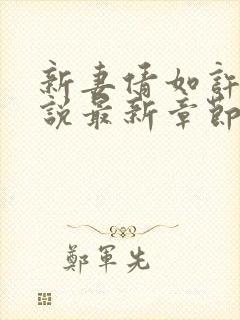 新妻情如許
說最新章節
鄭軍先